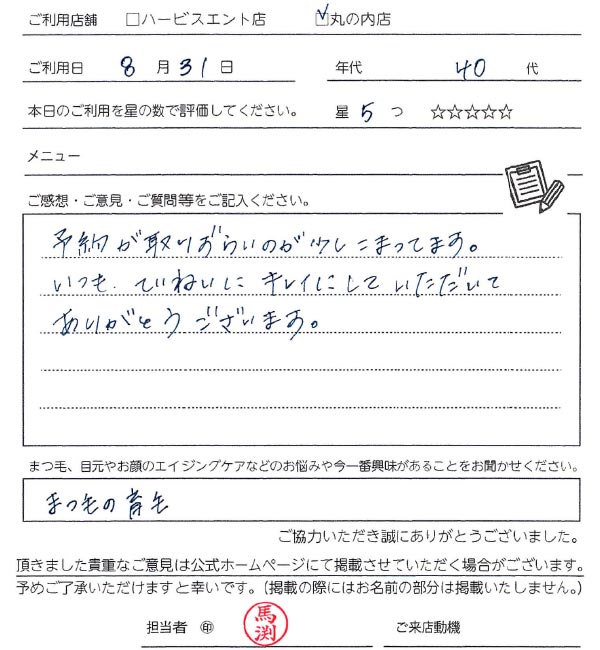 ご利用店舗 □ハービスエント店 ☑丸の内店
ご利用日 8月31日 年代 40代
本日のご利用を星の数で評価してください。 星5つ ☆☆☆☆☆
メニュー
ご感想・ご意見・ご質問等をご記入ください。
予約が取りずらいのが少しこまってます。
いつも、ていねいに キレイにして いただいて
ありがとう ございます。
まつ毛、目元やお顔のエイジングケアなどのお悩みや今一番興味があることをお聞かせください。
まつ毛の育毛
ご協力いただき誠にありがとうございました。
頂きました貴重なご意見は公式ホームページにて掲載させていただく場合がございます。
予めご了承いただけますと幸いです。（掲載の際にはお名前の部分は掲載いたしません。）
担当者 ㊞ 馬渕 ご来店動機